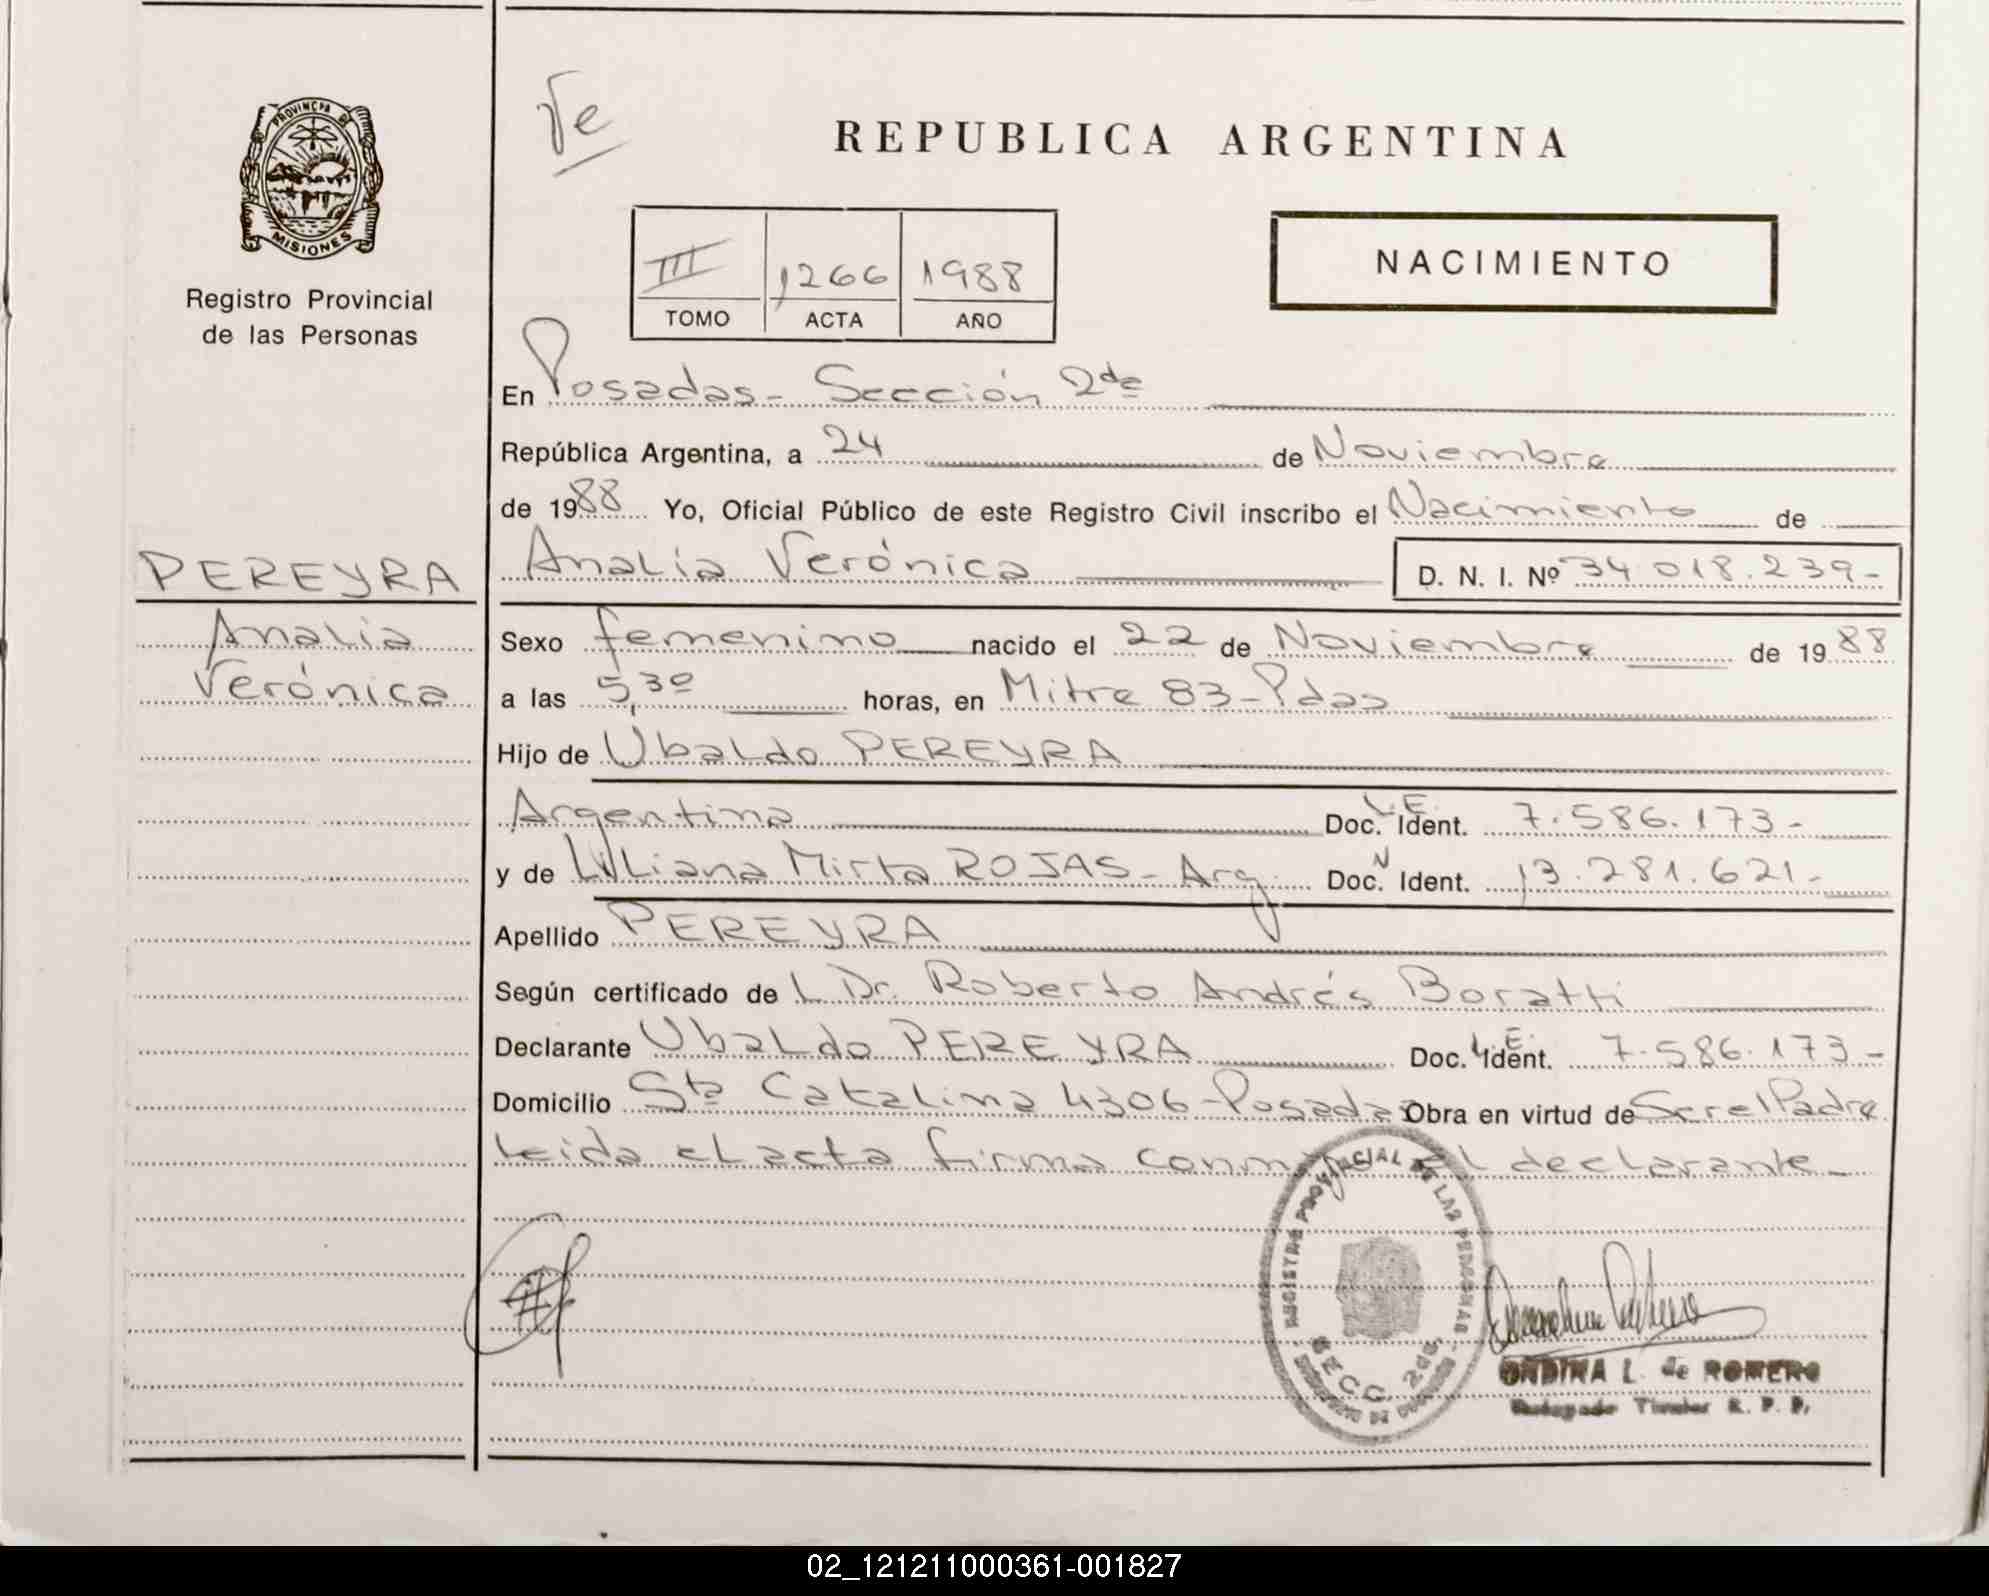 PROVINCIA DE
MISIONES
Registro Provincial
de las Personas
PEREYRA
Analía
Verónica
Ve
REPUBLICA ARGENTINA
III 1266 1988
TOMO ACTA AÑO
NACIMIENTO
En Posadas - Sección 2da
República Argentina, a 24 de Noviembre
de 1988 Yo, Oficial Público de este Registro Civil inscribo el Nacimiento de
Analía Verónica D. N. I. Nº 34.018.239-
Sexo femenino nacido el 22 de Noviembre de 1988
a las 5,30 horas, en Mitre 83 - Pdas
Hijo de Ubaldo PEREYRA
Argentina Doc. L.E. Ident. 7.586.173-
y de Liliana Mirta ROJAS - Arg. Doc. N Ident. 13.281.621-
Apellido PEREYRA
Según certificado de L Dr. Roberto Andrés Boratti
Declarante Ubaldo PEREYRA Doc. L.E. Ident. 7.586.173-
Domicilio Sta Catalina 4306 - Posadas Obra en virtud de Ser el Padre
Leida el acta firma conm el declarante -
REGISTRO PROVINCIAL DE LAS PERSONAS
SECC. 2da.
ONDINA L. de ROMERO
Titular R. P. P.
02_121211000361-001827